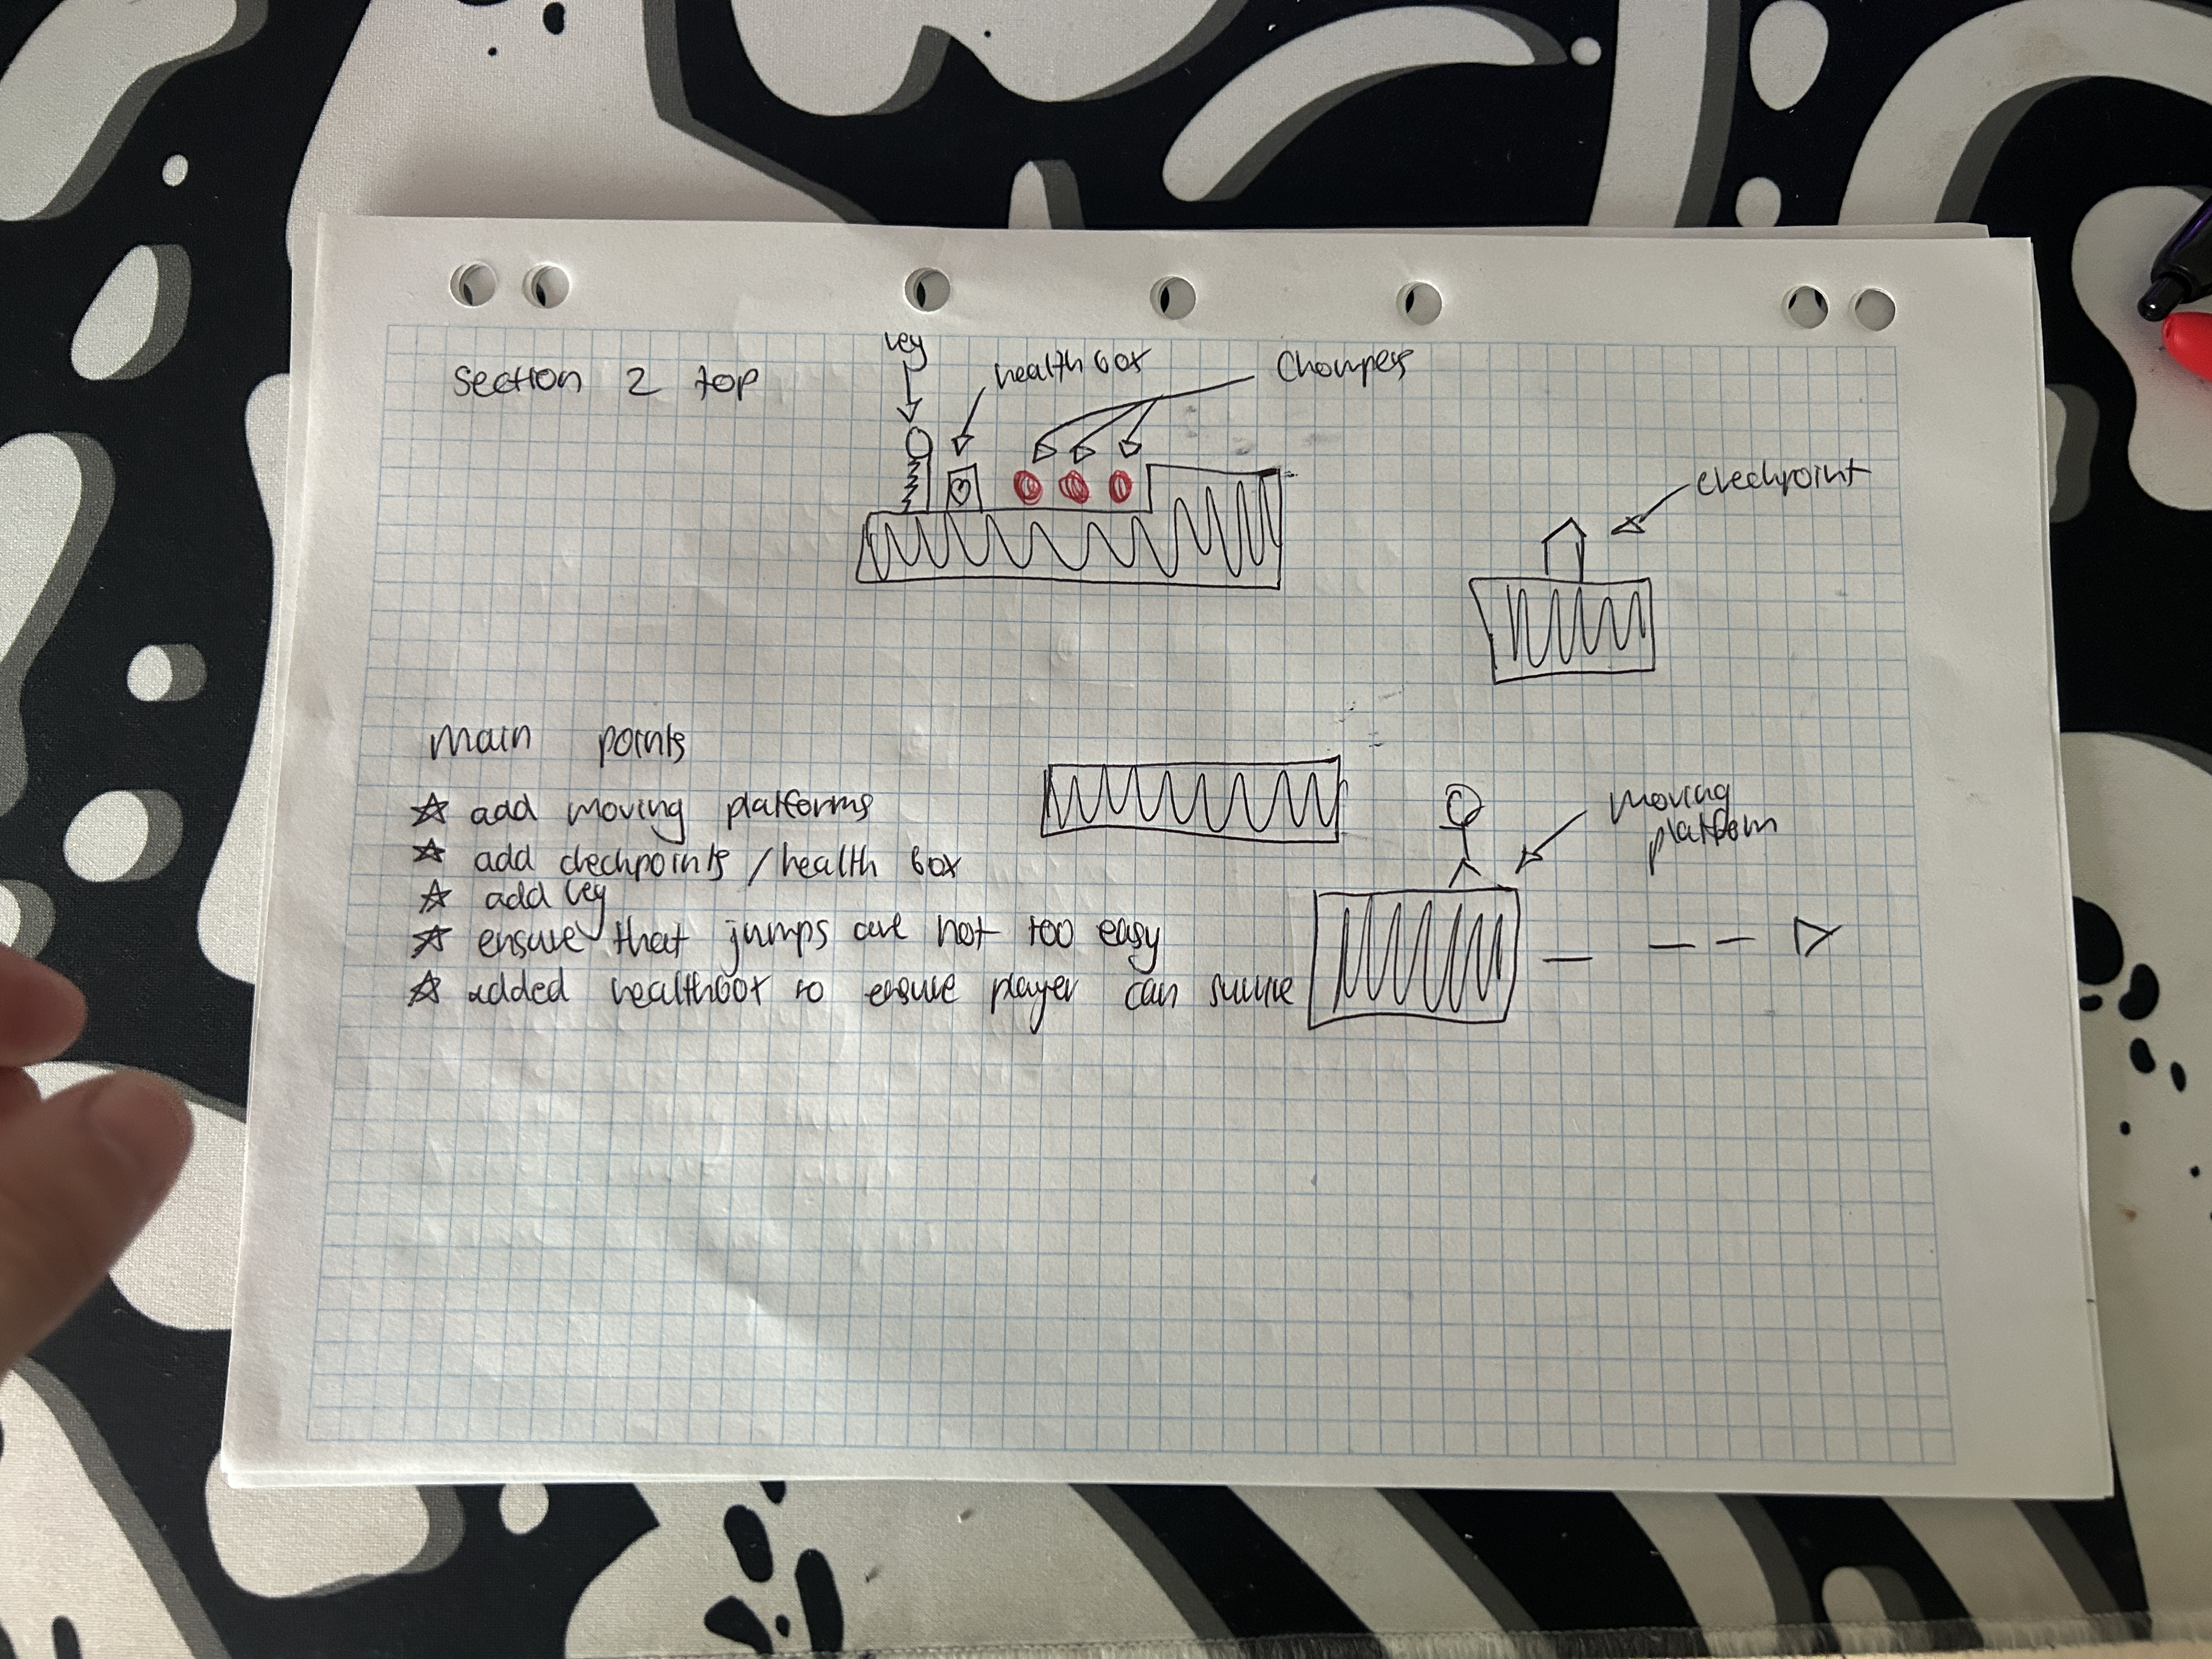 Section 2 top
key
health box
Chompers
checkpoint
main points
☆ add moving platforms
☆ add checkpoints / health box
☆ add key
☆ ensure that jumps are not too easy
☆ added healthbox to ensure player can
moving
platform